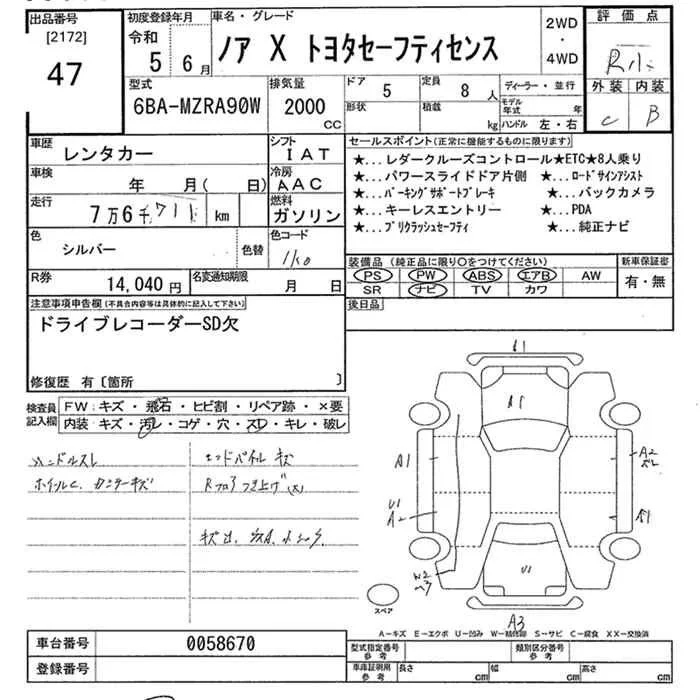 出品番号
[2172]
47
初度登録年月
令和
5 6月
車名・グレード
ノア X トヨタセーフティセンス
2WD
・
4WD
評価点
R
外装 内装
C B
型式
6BA-MZRA90W
排気量
2000
CC
ドア
5
定員
8 人
形状
積載
kg
ディーラー・並行
モデル年式 年
ハンドル 左・右
車歴
レンタカー
シフト
IAT
車検
年 月( 日)
冷房
AAC
走行
7万6千711 km
燃料
ガソリン
色
シルバー
色替
色コード
1K0
R券
14,040 円
名変通知期限
月 日
セールスポイント(正常に機能するものに限ります)
★...レダークルーズコントロール★ETC★8人乗り
★...パワースライドドア片側 ★...ロードサインアシスト
★...パーキングサポートブレーキ ★...バックカメラ
★...キーレスエントリー ★...PDA
★...プリクラッシュセーフティ ★...純正ナビ
装備品(純正品に限り○をつけてください)
PS PW ABS エアB AW
SR ナビ TV カワ
新車保証書
有・無
後日品
注意事項申告欄(不具合内容等は具体的に記入して下さい)
ドライブレコーダーSD欠
修復歴 有〔箇所 〕
検査員
記入欄
FW:キズ・飛石・ヒビ割・リペア跡・×要
内装:キズ・汚レ・コゲ・穴・スレ・キレ・破レ
ハンドルスレ
ホイルC. カンターキズ
エンドパイルキズ
Rフロアつき上げ(大)
A1
A1
U1
A2
W2
A2
A1
U1
A3
スペア
A-キズ E-エクボ U-凹み W-補修跡 S-サビ C-腐食 XX-交換済
車台番号
0058670
登録番号
型式指定番号
参考
類別区分番号
参考
車庫証明用
参考
長さ cm
幅 cm
高さ cm